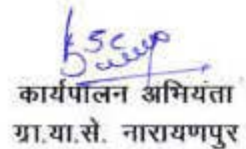 कार्यपालन अभियंता
ग्रा.या.से. नारायणपुर